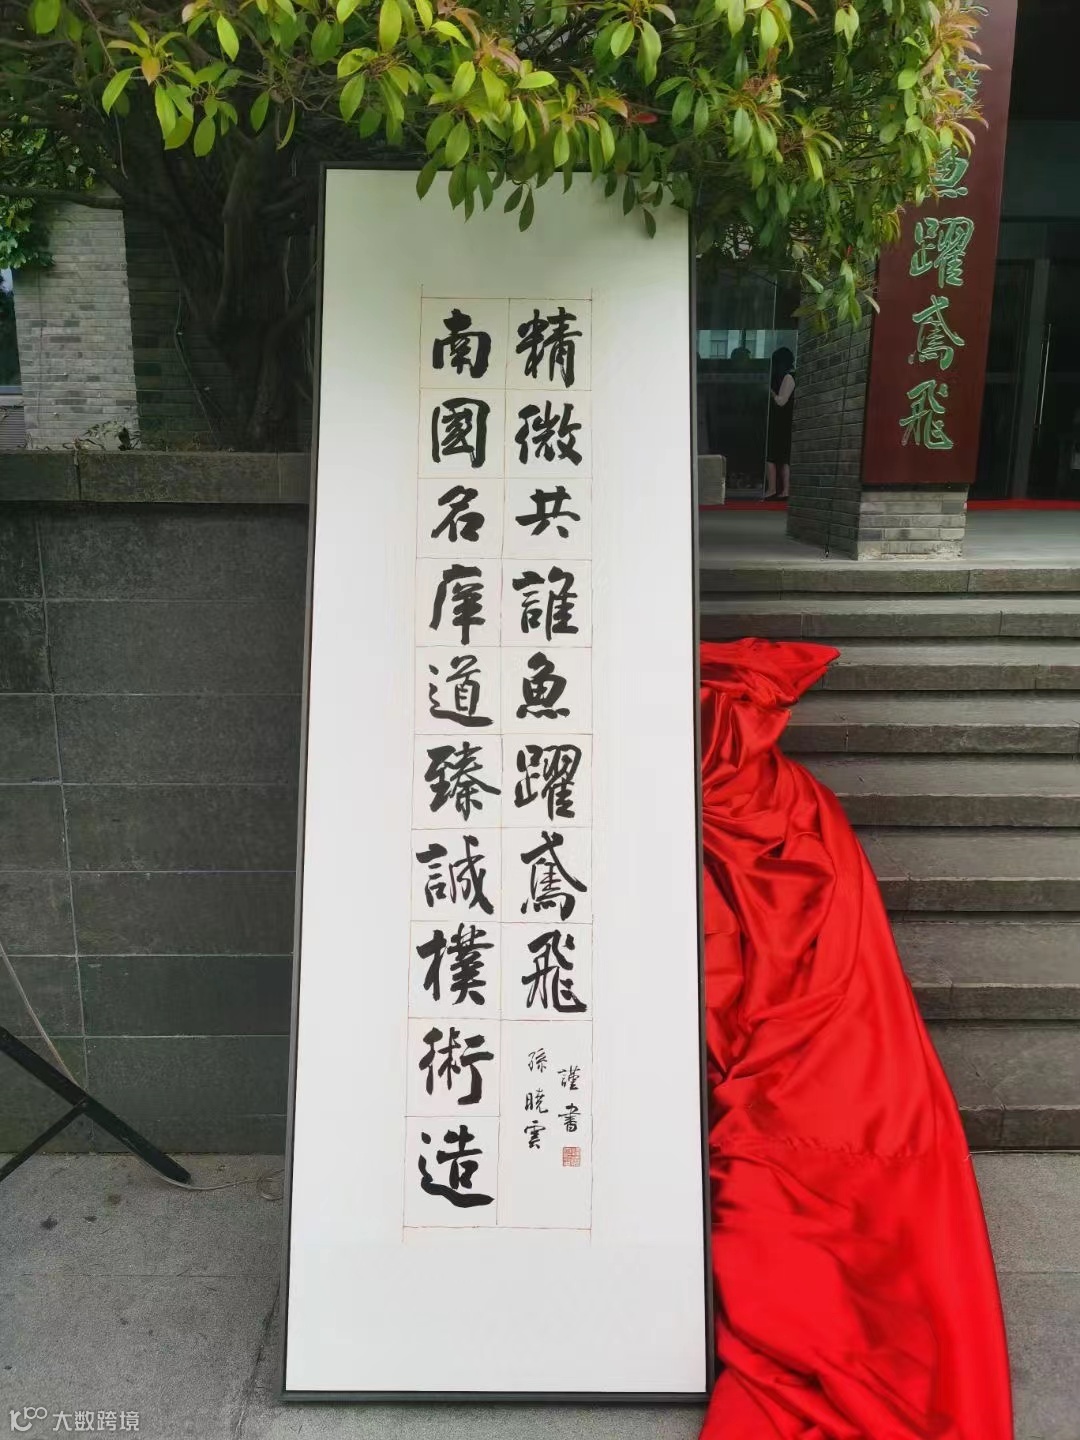 南國名庠道臻誠樸術造
精微共誰魚躍鳶飛
孫曉雲
謹書
魚躍鳶飛
大数跨境